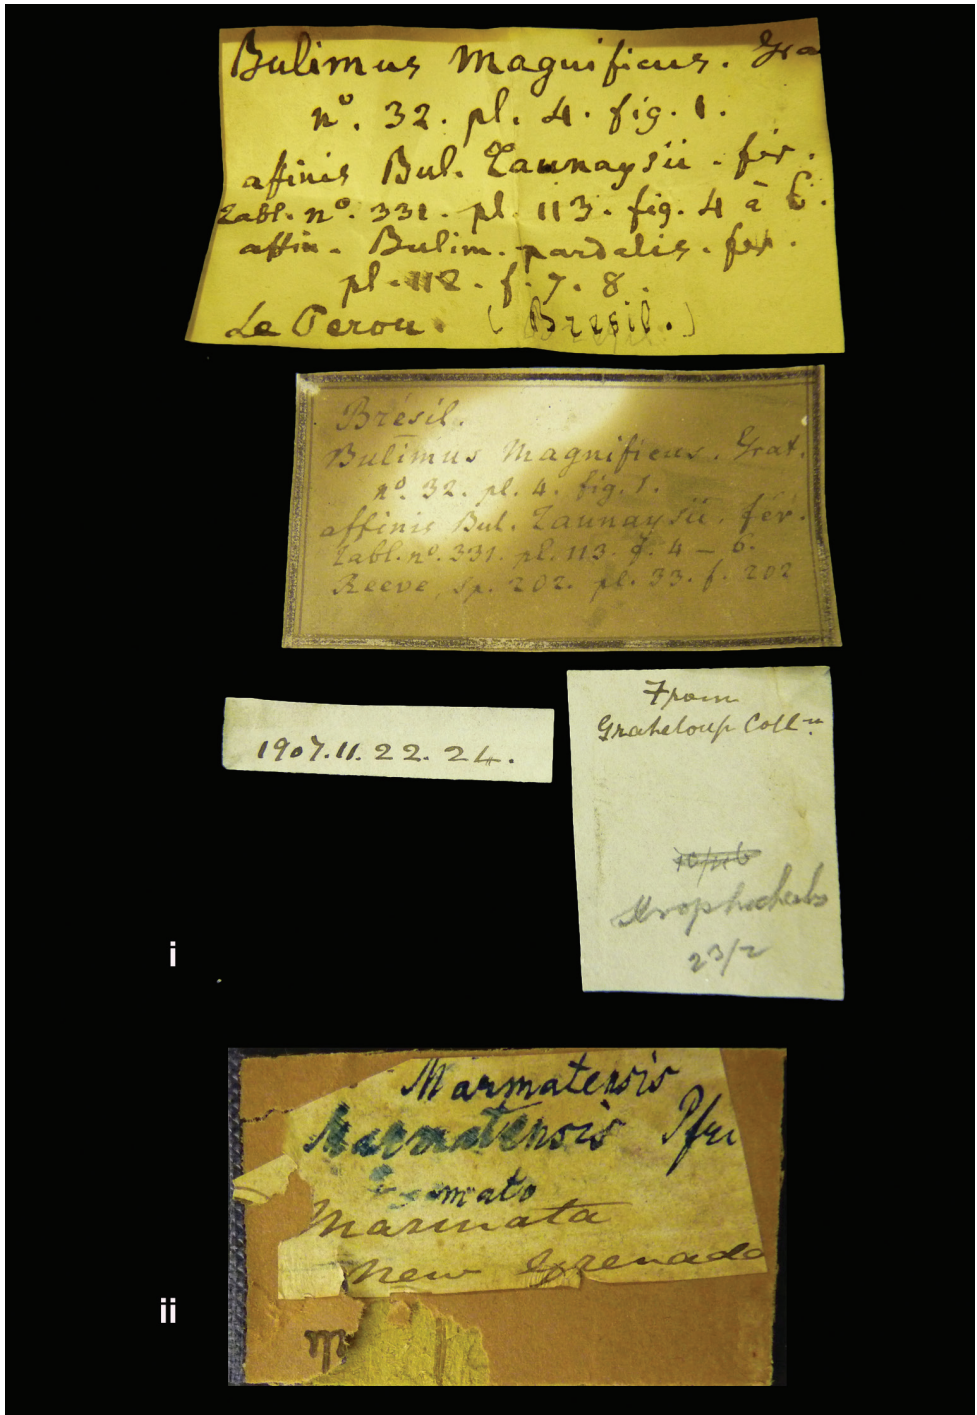 Bulimus Magnificus. Gra
nº. 32. pl. 4. fig. 1.
affinis Bul. Taunaysii. fér.
tabl. nº. 331. pl. 113. fig. 4 à 6.
affin. Bulim. pardalis. fér.
pl. 112. f. 7. 8.
Le Perou. (Bresil.)
Brésil.
Bulimus Magnificus. Grat.
nº. 32. pl. 4. fig. 1.
affinis Bul. Taunaysii. fér.
tabl. nº. 331. pl. 113. f. 4 – 6.
Reeve sp. 202. pl. 33. f. 202
1907.11.22.24.
From
Grateloup Colln.
Strophocheilus
23/2
i
Marmatensis
Marmatensis Pfr
Marmata
New Grenada
ii